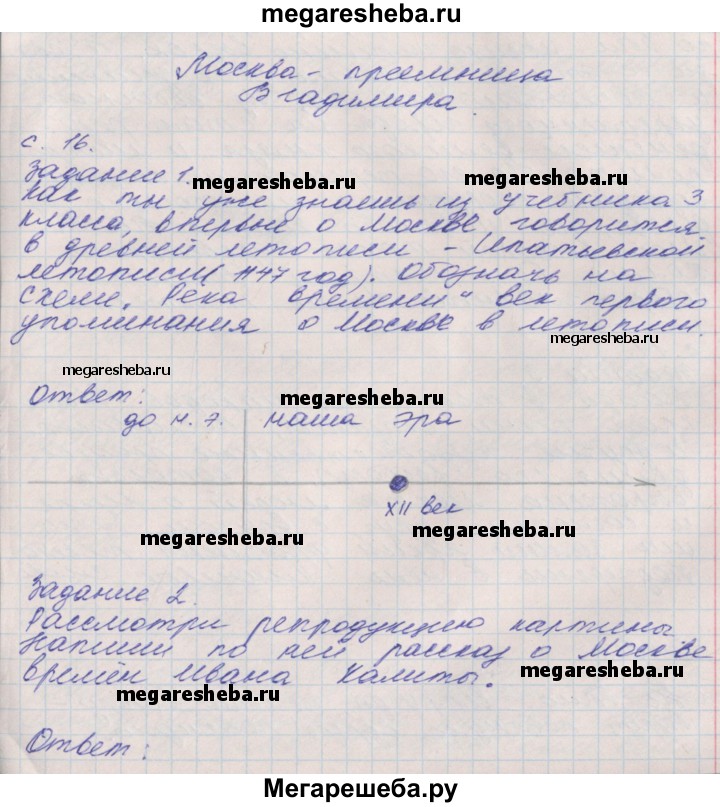 megaresheba.ru
Москва - преемница
Владимира
с. 16.
Задание 1.
megaresheba.ru
megaresheba.ru
Как ты уже знаешь из учебника 3
класса, впервые о Москве говорится
в древней летописи - Ипатьевской
летописи (1147 год). Обозначь на
схеме „Река времени“ век первого
упоминания о Москве в летописи.
megaresheba.ru
megaresheba.ru
Ответ:
megaresheba.ru
до н. э. наша эра
XII век
megaresheba.ru
megaresheba.ru
Задание 2.
Рассмотри репродукцию картины.
Напиши по ней рассказ о Москве
времён Ивана Калиты.
megaresheba.ru
megaresheba.ru
Ответ:
Мегарешеба.ру